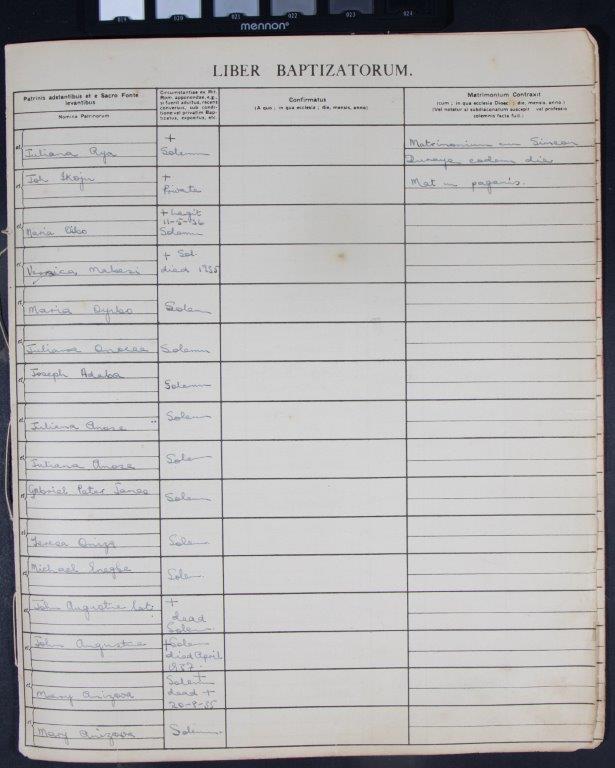 019 020 021 022 023 024
mennon
LIBER BAPTIZATORUM.
Patrinis adstantibus et e Sacro Fonte
levantibus
Nomina Patrinorum
Circumstantiae ex Rit.
Rom. apponendae, e.g.,
si fuerit adultus, recens
conversus, sub condi-
tione vel privatim Bap-
tizatus, expositus, etc.
Confirmatus
(A quo; in qua ecclesia; die, mensis, anno)
Matrimonium Contraxit
(cum; in qua ecclesia Dioec; die, mensis, anno.)
(Vel notatur si subdiaconatum suscepit vel professio
solemnis facta fuit.)
et
Juliana Aya
+
Solemn
Matrimonium cum Simeon
eadem die
et
Joh
+
Private
Mat in paganis.
et
Maria
+ Legit
11-5-36
Solemn
et
Veronica Mabesi
+ Sol.
died 1935
et
Maria Oyibo
Solem
et
Juliana
Solemn
et
Joseph Adaba
Solemn
et
Juliana Anose
Solem
et
Juliana Anose
Solem
et
Gabriel Peter
Solem
et
Teresa
Solem
et
Michael
Solem.
et
John Augustine Cat.
+
dead
Solem.
et
John Augustine
+ Solem
died April
1937.
et
Mary Arizova
Solemn
dead +
20-8-35
et
Mary Arizova
Solemn.